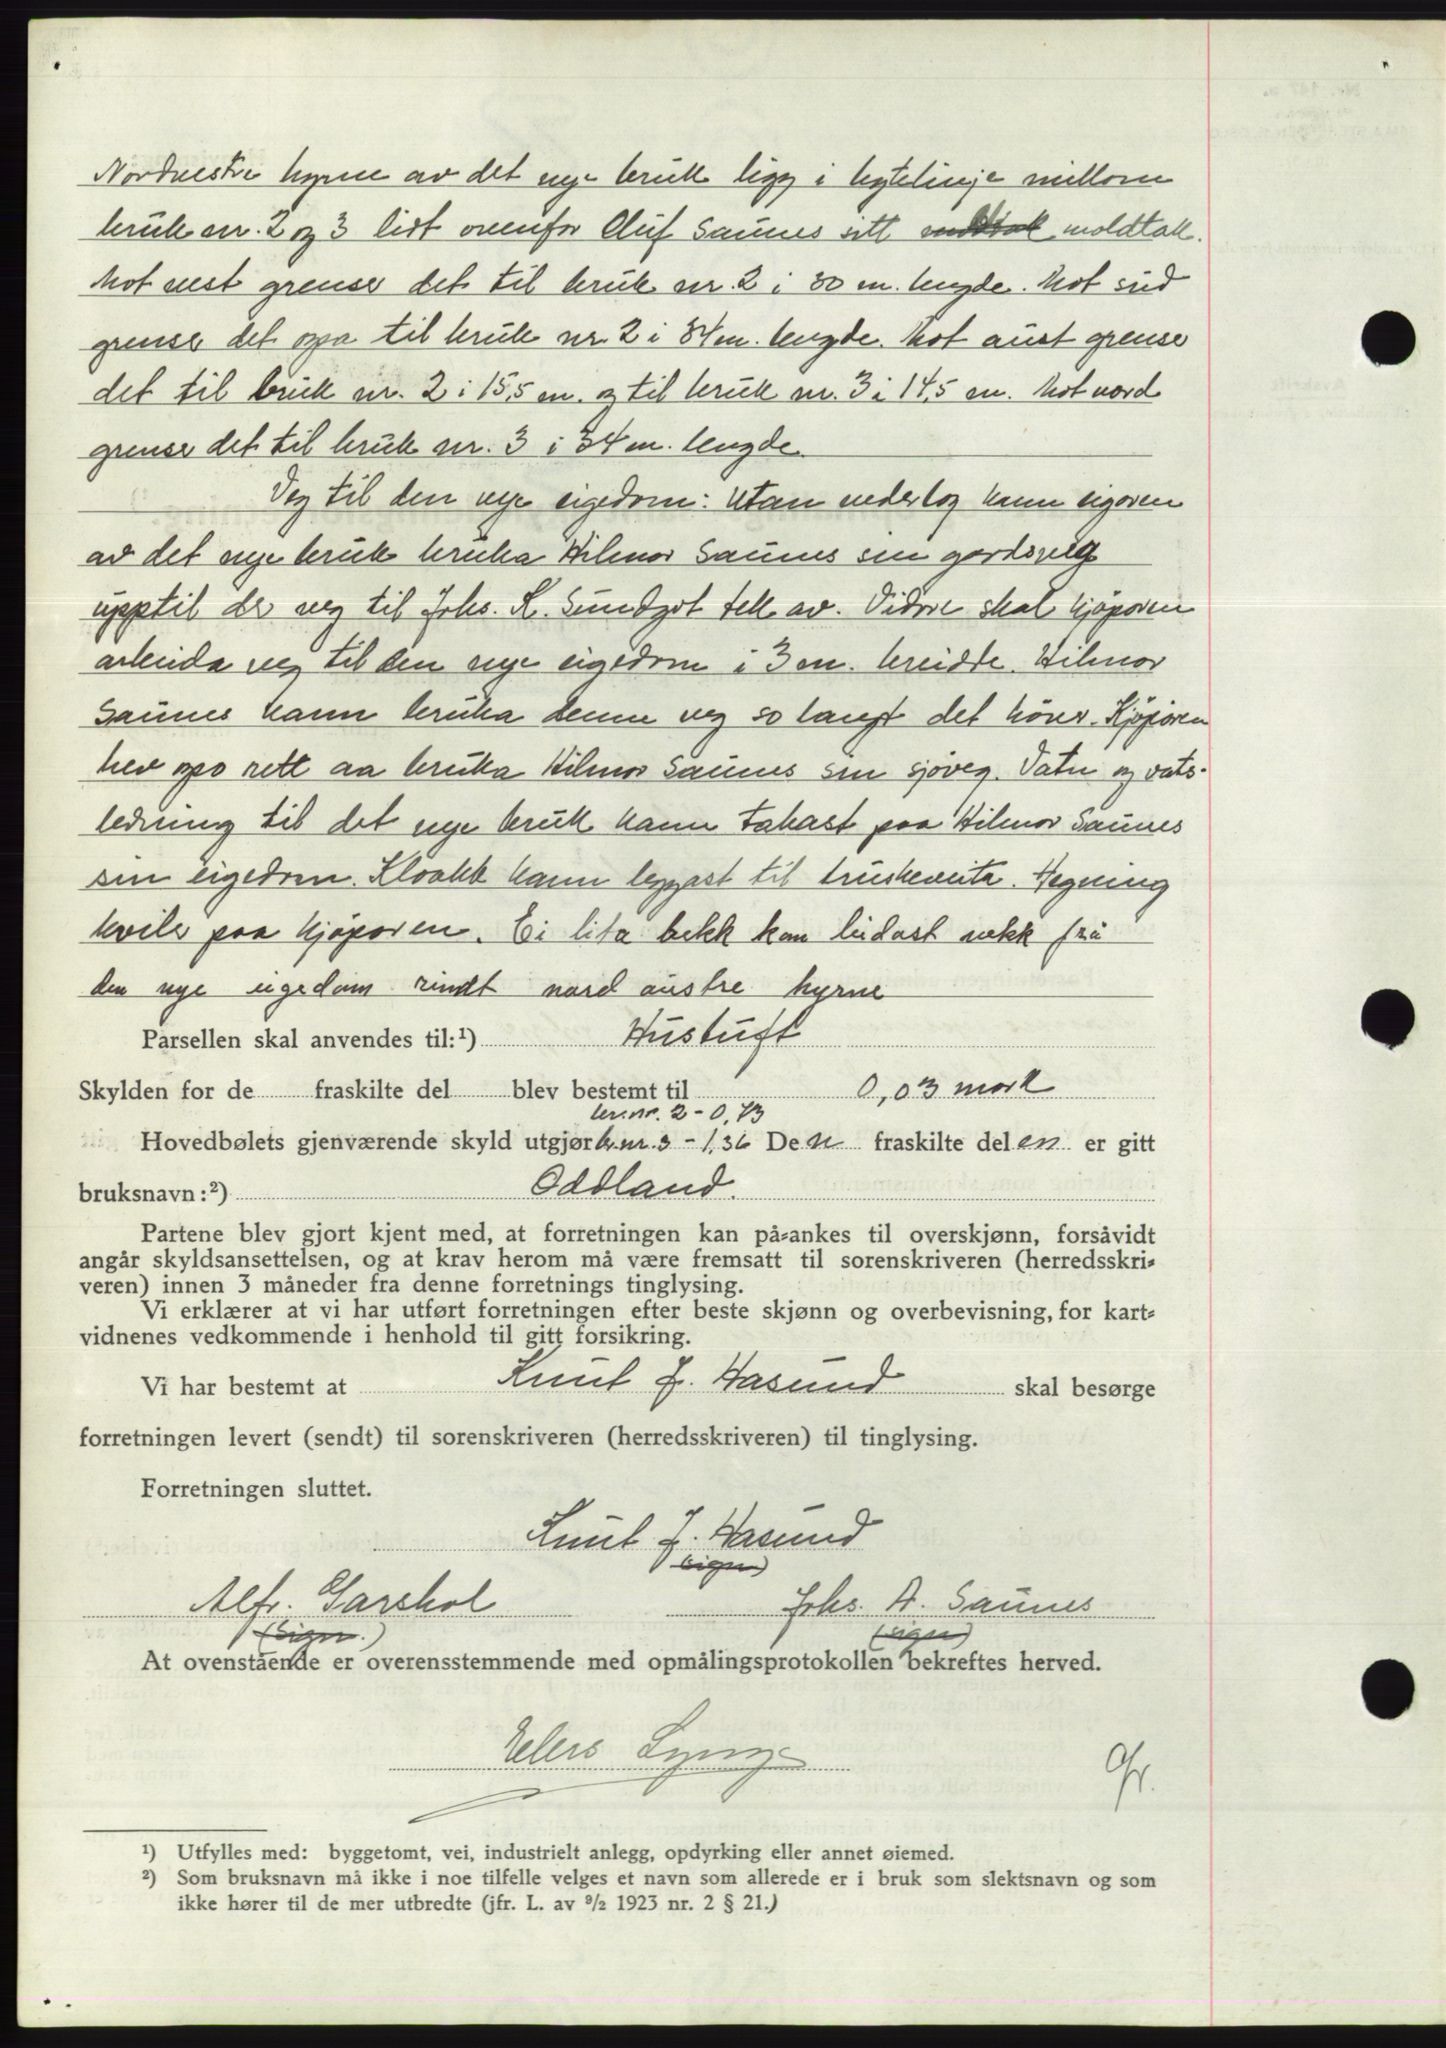 Nordvestre hyrne av det nye bruk ligg i bytelinje millom
bruk nr. 2 og 3 lidt ovenfor Oluf Saunes sitt moldtak.
Mot vest grenser det til bruk nr. 2 i 30 m. lengde. Mot sud
grenser det opo til bruk nr 2 i 34 m. lengde. Mot aust grenser
det til bruk nr. 2 i 15,5 m. og til bruk nr. 3 i 14,5 m. Mot nord
grenser det til bruk nr. 3 i 34 m. lengde.
Veg til den nye eigedom: Utan vederlog kann eigoren
av det nye bruk bruka Hilmar Saunes sin gardsveg
upptil der veg til Johs. K. Sundgot tek av. Vidare skal kjøparen
arbeida veg til den nye eigedom i 3 m. breidde. Hilmar
Saunes kann bruka denne veg so langt det høver. Kjøparen
hev opo rett aa bruka Hilmar Saunes sin sjøveg. Vatn og vats-
ledning til det nye bruk kann takast paa Hilmar Saunes
sin eigedom. Kloakk kann leggast til Hegning
kviler paa kjøparen. Ei lita bekk kan leidast vekk frå
den nye eigedom rundt nord austre hyrne
Parsellen skal anvendes til:¹) Hustuft
Skylden for de fraskilte del blev bestemt til 0,03 mark
br. nr. 2 - 0,73
Hovedbølets gjenværende skyld utgjør br. nr. 3 - 1,36 Den fraskilte delen er gitt
bruksnavn:²) Oddland.
Partene blev gjort kjent med, at forretningen kan på-ankes til overskjønn, forsåvidt
angår skyldsansettelsen, og at krav herom må være fremsatt til sorenskriveren (herredsskri-
veren) innen 3 måneder fra denne forretnings tinglysing.
Vi erklærer at vi har utført forretningen efter beste skjønn og overbevisning, for kart-
vidnenes vedkommende i henhold til gitt forsikring.
Vi har bestemt at Knut J. Hasund skal besørge
forretningen levert (sendt) til sorenskriveren (herredsskriveren) til tinglysing.
Forretningen sluttet.
Knut J. Hasund
(sign)
Alfr. Garshol Johs. A. Saunes
(Sign.) (sign)
At ovenstående er overensstemmende med opmålingsprotokollen bekreftes herved.
¹) Utfylles med: byggetomt, vei, industrielt anlegg, opdyrking eller annet øiemed.
²) Som bruksnavn må ikke i noe tilfelle velges et navn som allerede er i bruk som slektsnavn og som
ikke hører til de mer utbredte (jfr. L. av 9/2 1923 nr. 2 § 21.)